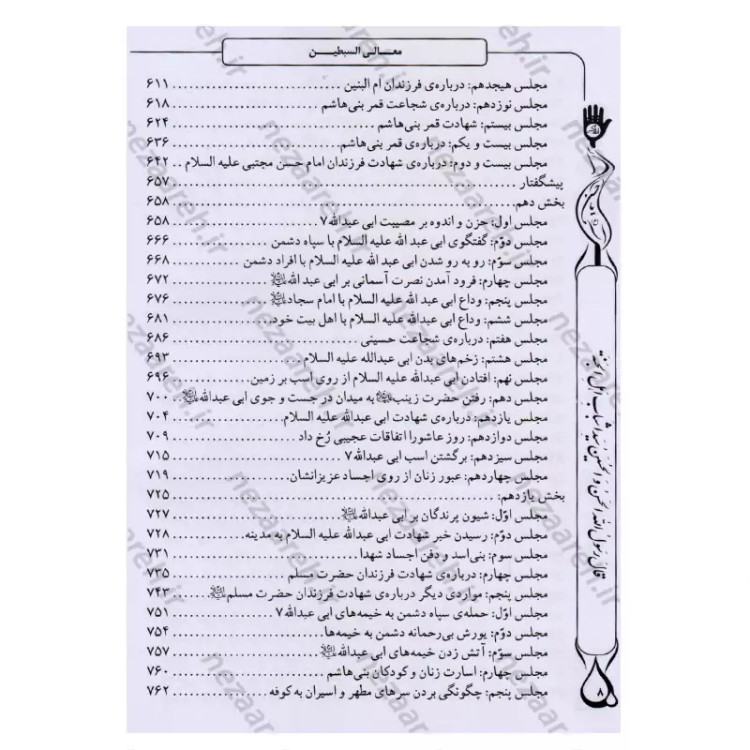 معالی السبطین
مجلس هیجدهم: درباره‌ی فرزندان ام البنین ۶۱۱
مجلس نوزدهم: درباره‌ی شجاعت قمر بنی‌هاشم ۶۱۸
مجلس بیستم: شهادت قمر بنی‌هاشم ۶۲۴
مجلس بیست و یکم: درباره‌ی قمر بنی‌هاشم ۶۳۶
مجلس بیست و دوم: درباره‌ی شهادت فرزندان امام حسن مجتبی علیه السلام ۶۴۲
پیشگفتار ۶۵۷
بخش دهم ۶۵۸
مجلس اول: حزن و اندوه بر مصیبت ابی عبدالله۷ ۶۵۸
مجلس دوّم: گفتگوی ابی عبد الله علیه السلام با سپاه دشمن ۶۶۶
مجلس سوّم: رو به رو شدن ابی عبد الله علیه السلام با افراد دشمن ۶۶۸
مجلس چهارم: فرود آمدن نصرت آسمانی بر ابی عبد الله ۶۷۲
مجلس پنجم: وداع ابی عبد الله علیه السلام با امام سجاد ۶۷۶
مجلس ششم: وداع ابی عبد الله علیه السلام با اهل بیت خود ۶۸۱
مجلس هفتم: درباره‌ی شجاعت حسینی ۶۸۶
مجلس هشتم: زخم‌های بدن ابی عبدالله علیه السلام ۶۹۳
مجلس نهم: افتادن ابی عبدالله علیه السلام از روی اسب بر زمین ۶۹۶
مجلس دهم: رفتن حضرت زینب به میدان در جست و جوی ابی عبدالله ۷۰۰
مجلس یازدهم: درباره‌ی شهادت ابی عبدالله علیه السلام ۷۰۴
مجلس دوازدهم: روز عاشورا اتفاقات عجیبی رُخ داد ۷۰۹
مجلس سیزدهم: برگشتن اسب ابی عبدالله۷ ۷۱۵
مجلس چهاردهم: عبور زنان از روی اجساد عزیزانشان ۷۱۹
بخش یازدهم: ۷۲۵
مجلس اوّل: شیون پرندگان بر ابی عبدالله ۷۲۷
مجلس دوّم: رسیدن خبر شهادت ابی عبدالله علیه السلام به مدینه ۷۲۸
مجلس سوم: بنی‌اسد و دفن اجساد شهدا ۷۳۱
مجلس چهارم: درباره‌ی شهادت فرزندان حضرت مسلم ۷۳۵
مجلس پنجم: مواردی دیگر درباره‌ی شهادت فرزندان حضرت مسلم ۷۴۳
مجلس اوّل: حمله‌ی سپاه دشمن به خیمه‌های ابی عبدالله۷ ۷۵۱
مجلس دوم: یورش بی‌رحمانه دشمن به خیمه‌ها ۷۵۴
مجلس سوّم: آتش زدن خیمه‌های ابی عبدالله ۷۵۷
مجلس چهارم: اسارت زنان و کودکان بنی‌هاشم ۷۶۰
مجلس پنجم: چگونگی بردن سرهای مطهر و اسیران به کوفه ۷۶۲
قال رسول الله الحسن و الحسین سیدا شباب اهل الجنة
۸
nezaareh.ir